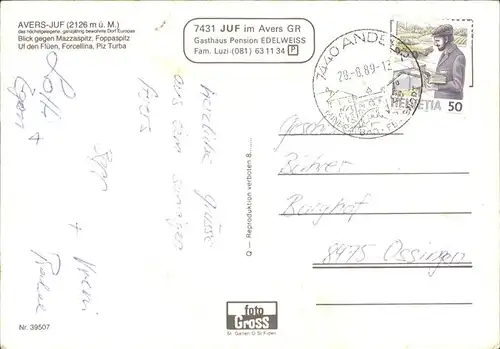 AVERS-JUF (2126 m ü. M.)
das höchstgelegene, ganzjährig bewohnte Dorf Europas
Blick gegen Mazzaspitz, Foppaspitz
Uf den Flüen, Forcellina, Piz Turba
7431 JUF im Avers GR
Gasthaus Pension EDELWEISS
Fam. Luzi (081) 63 11 34 P
7440 ANDEER
28.-8.89-12
HELVETIA 50
Herzliche Grüsse
aus dem sonnigen
Avers
+ Vreni
Q — Reproduktion verboten B
Bührer
Burghof
8475 Ossingen
foto
Gross
St. Gallen
Nr. 39507